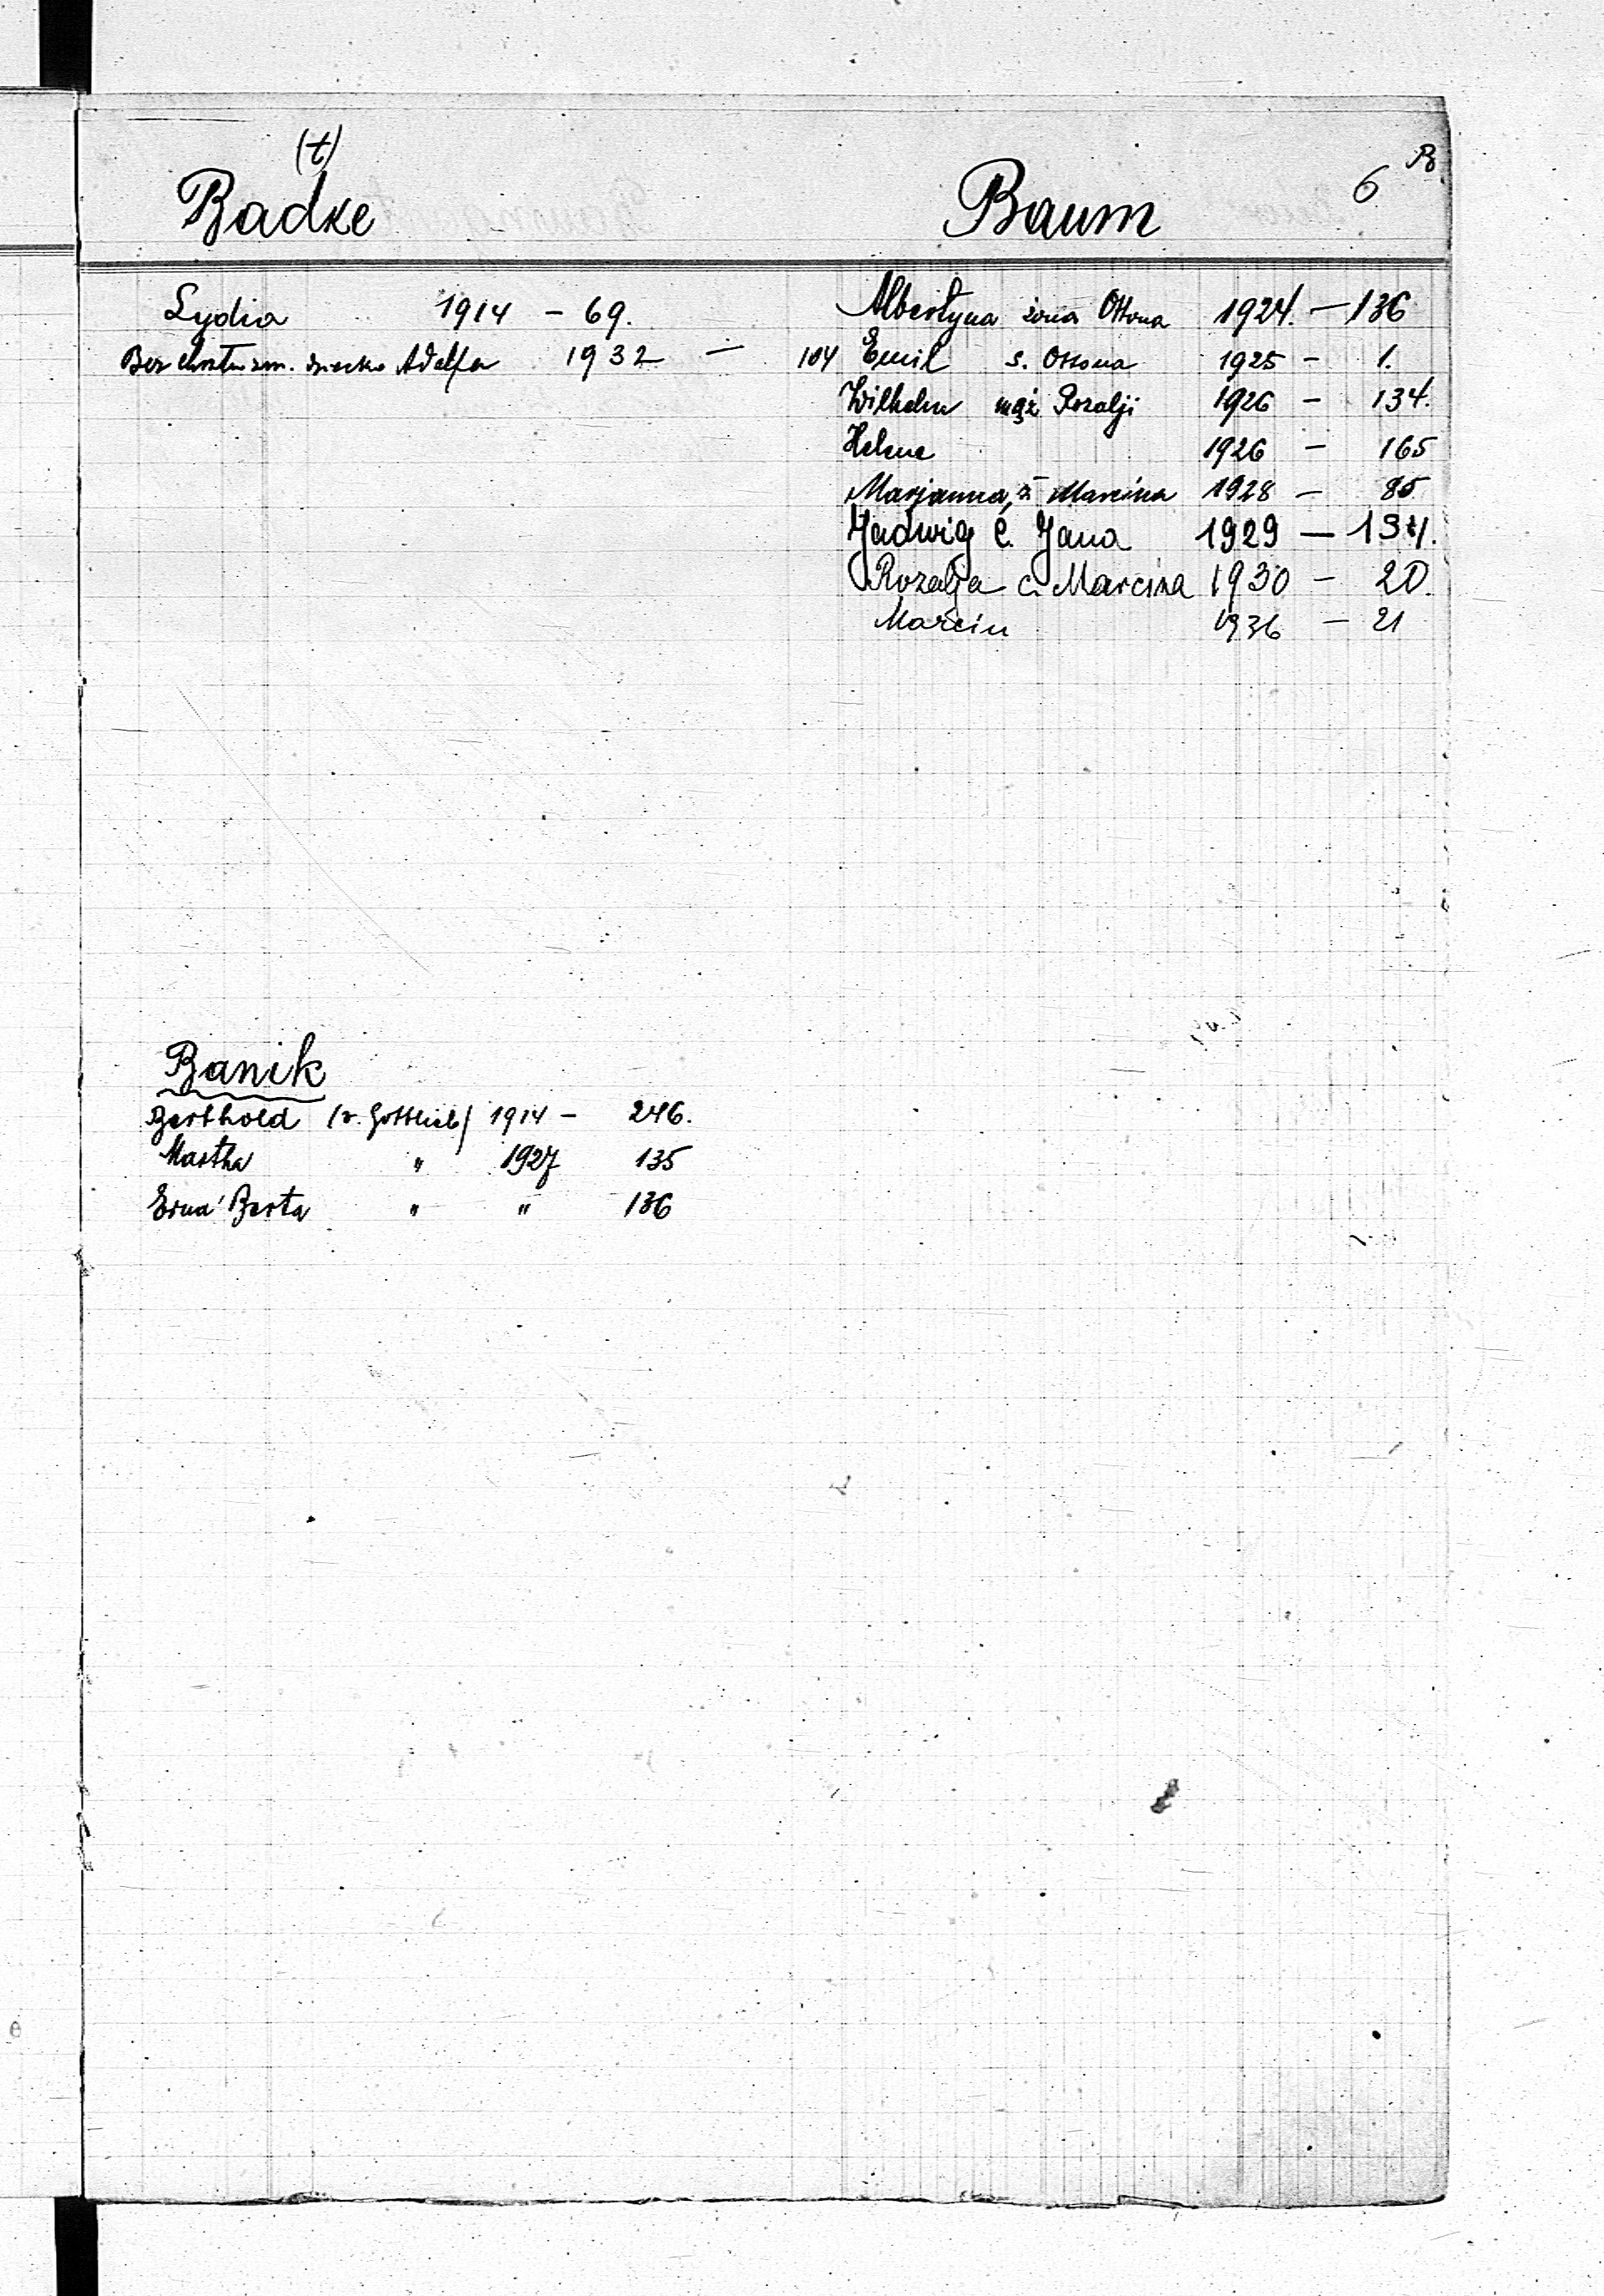 B.
6
(t)
Badke
Lydia 1914 - 69.
Bez chrztu zm. dziecko Adolfa 1932 - 104
Banik
Berthold (v. Gottlieb) 1914 - 246.
Martha " 1927 135
Erna Berta " " 136
Baum
Albertyna żona Ottona 1924. - 136
Emil s. Ottona 1925 - 1.
Wilhelm mąż Rozalji 1926 - 134.
Helene 1926 - 165
Marjanna, ż Marcina 1928 - 85
Jadwig c. Jana 1929 - 134.
Rozalja c. Marcina 1930 - 20.
Marcin 1936 - 21